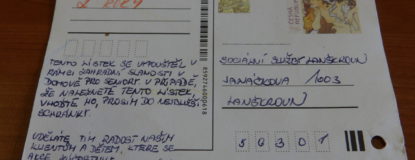 Z ŘÍZY
TENTO LÍSTEK SE VYPOUŠTĚL V
RÁMCI ZAHRADNÍ SLAVNOSTI V
DOMOVĚ PRO SENIORY. V PŘÍPADĚ,
ŽE NALEZNETE TENTO LÍSTEK,
VHOĎTE HO, PROSÍM DO NEJBLIŽŠÍ
SCHRÁNKY.
UDĚLÁTE TÍM RADOST NAŠIM
KLIENTŮM A DĚTEM, KTERÉ SE
AKCE
8592744000618
ČESKÁ
SOCIÁLNÍ SLUŽBY LANŠKROUN
JANÁČKOVA 1003
LANŠKROUN
56301